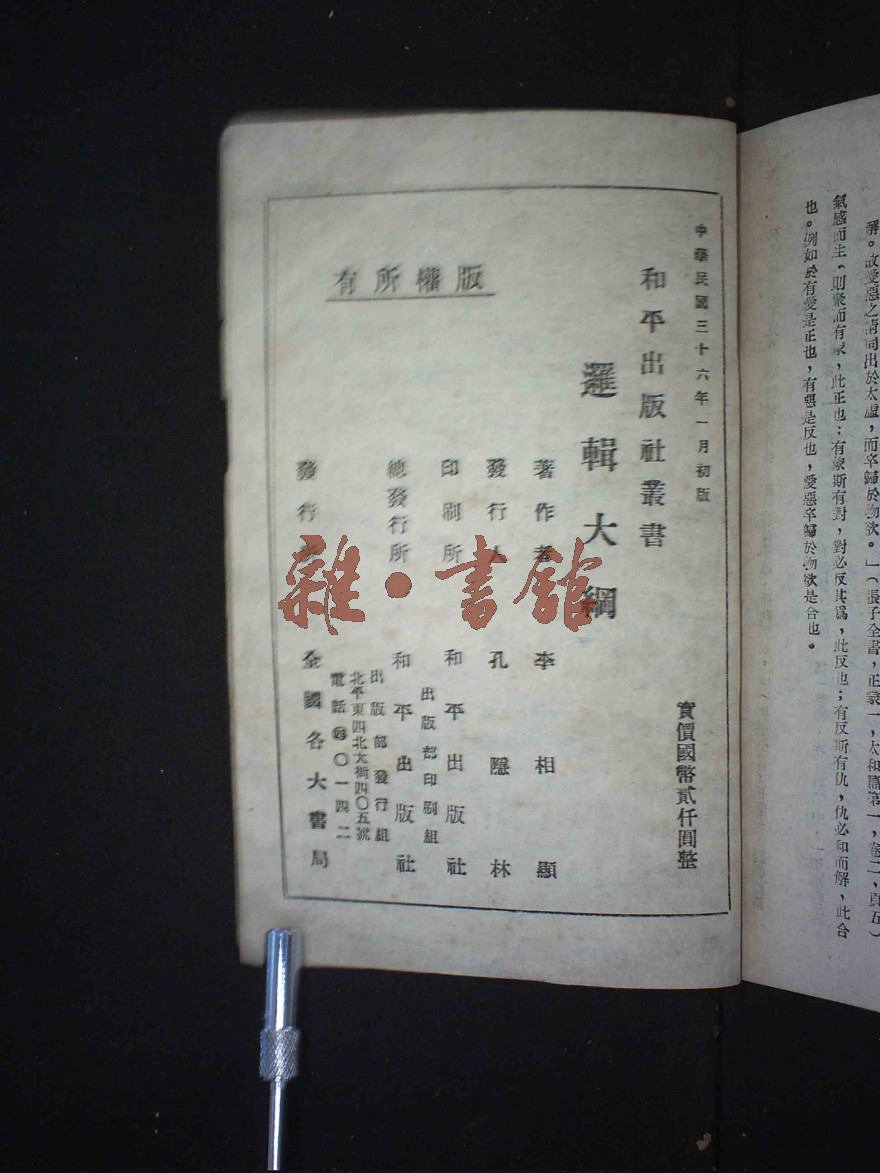 解。故愛惡之情同出於太虛，而卒歸於物欲。」（張子全書，正蒙一，太和篇第一，卷二，頁五）
氣感而生。則聚而有象，此正也；有象斯有對，對必反其爲，此反也；有反斯有仇，仇必和而解，此合
也。例如於有愛是正也，有惡是反也，愛惡卒歸於物欲是合也。
中華民國三十六年一月初版
和平出版社叢書
實價國幣貳仟圓整
邏輯大綱
著作者 李相顯
發行人 孔隱林
印刷所 和平出版社
出版部印刷組
總發行所 和平出版社
出版部發行組
北平東四北大街四〇五號
電話㈣〇一四二
發行 全國各大書局
版權所有
雜·書館